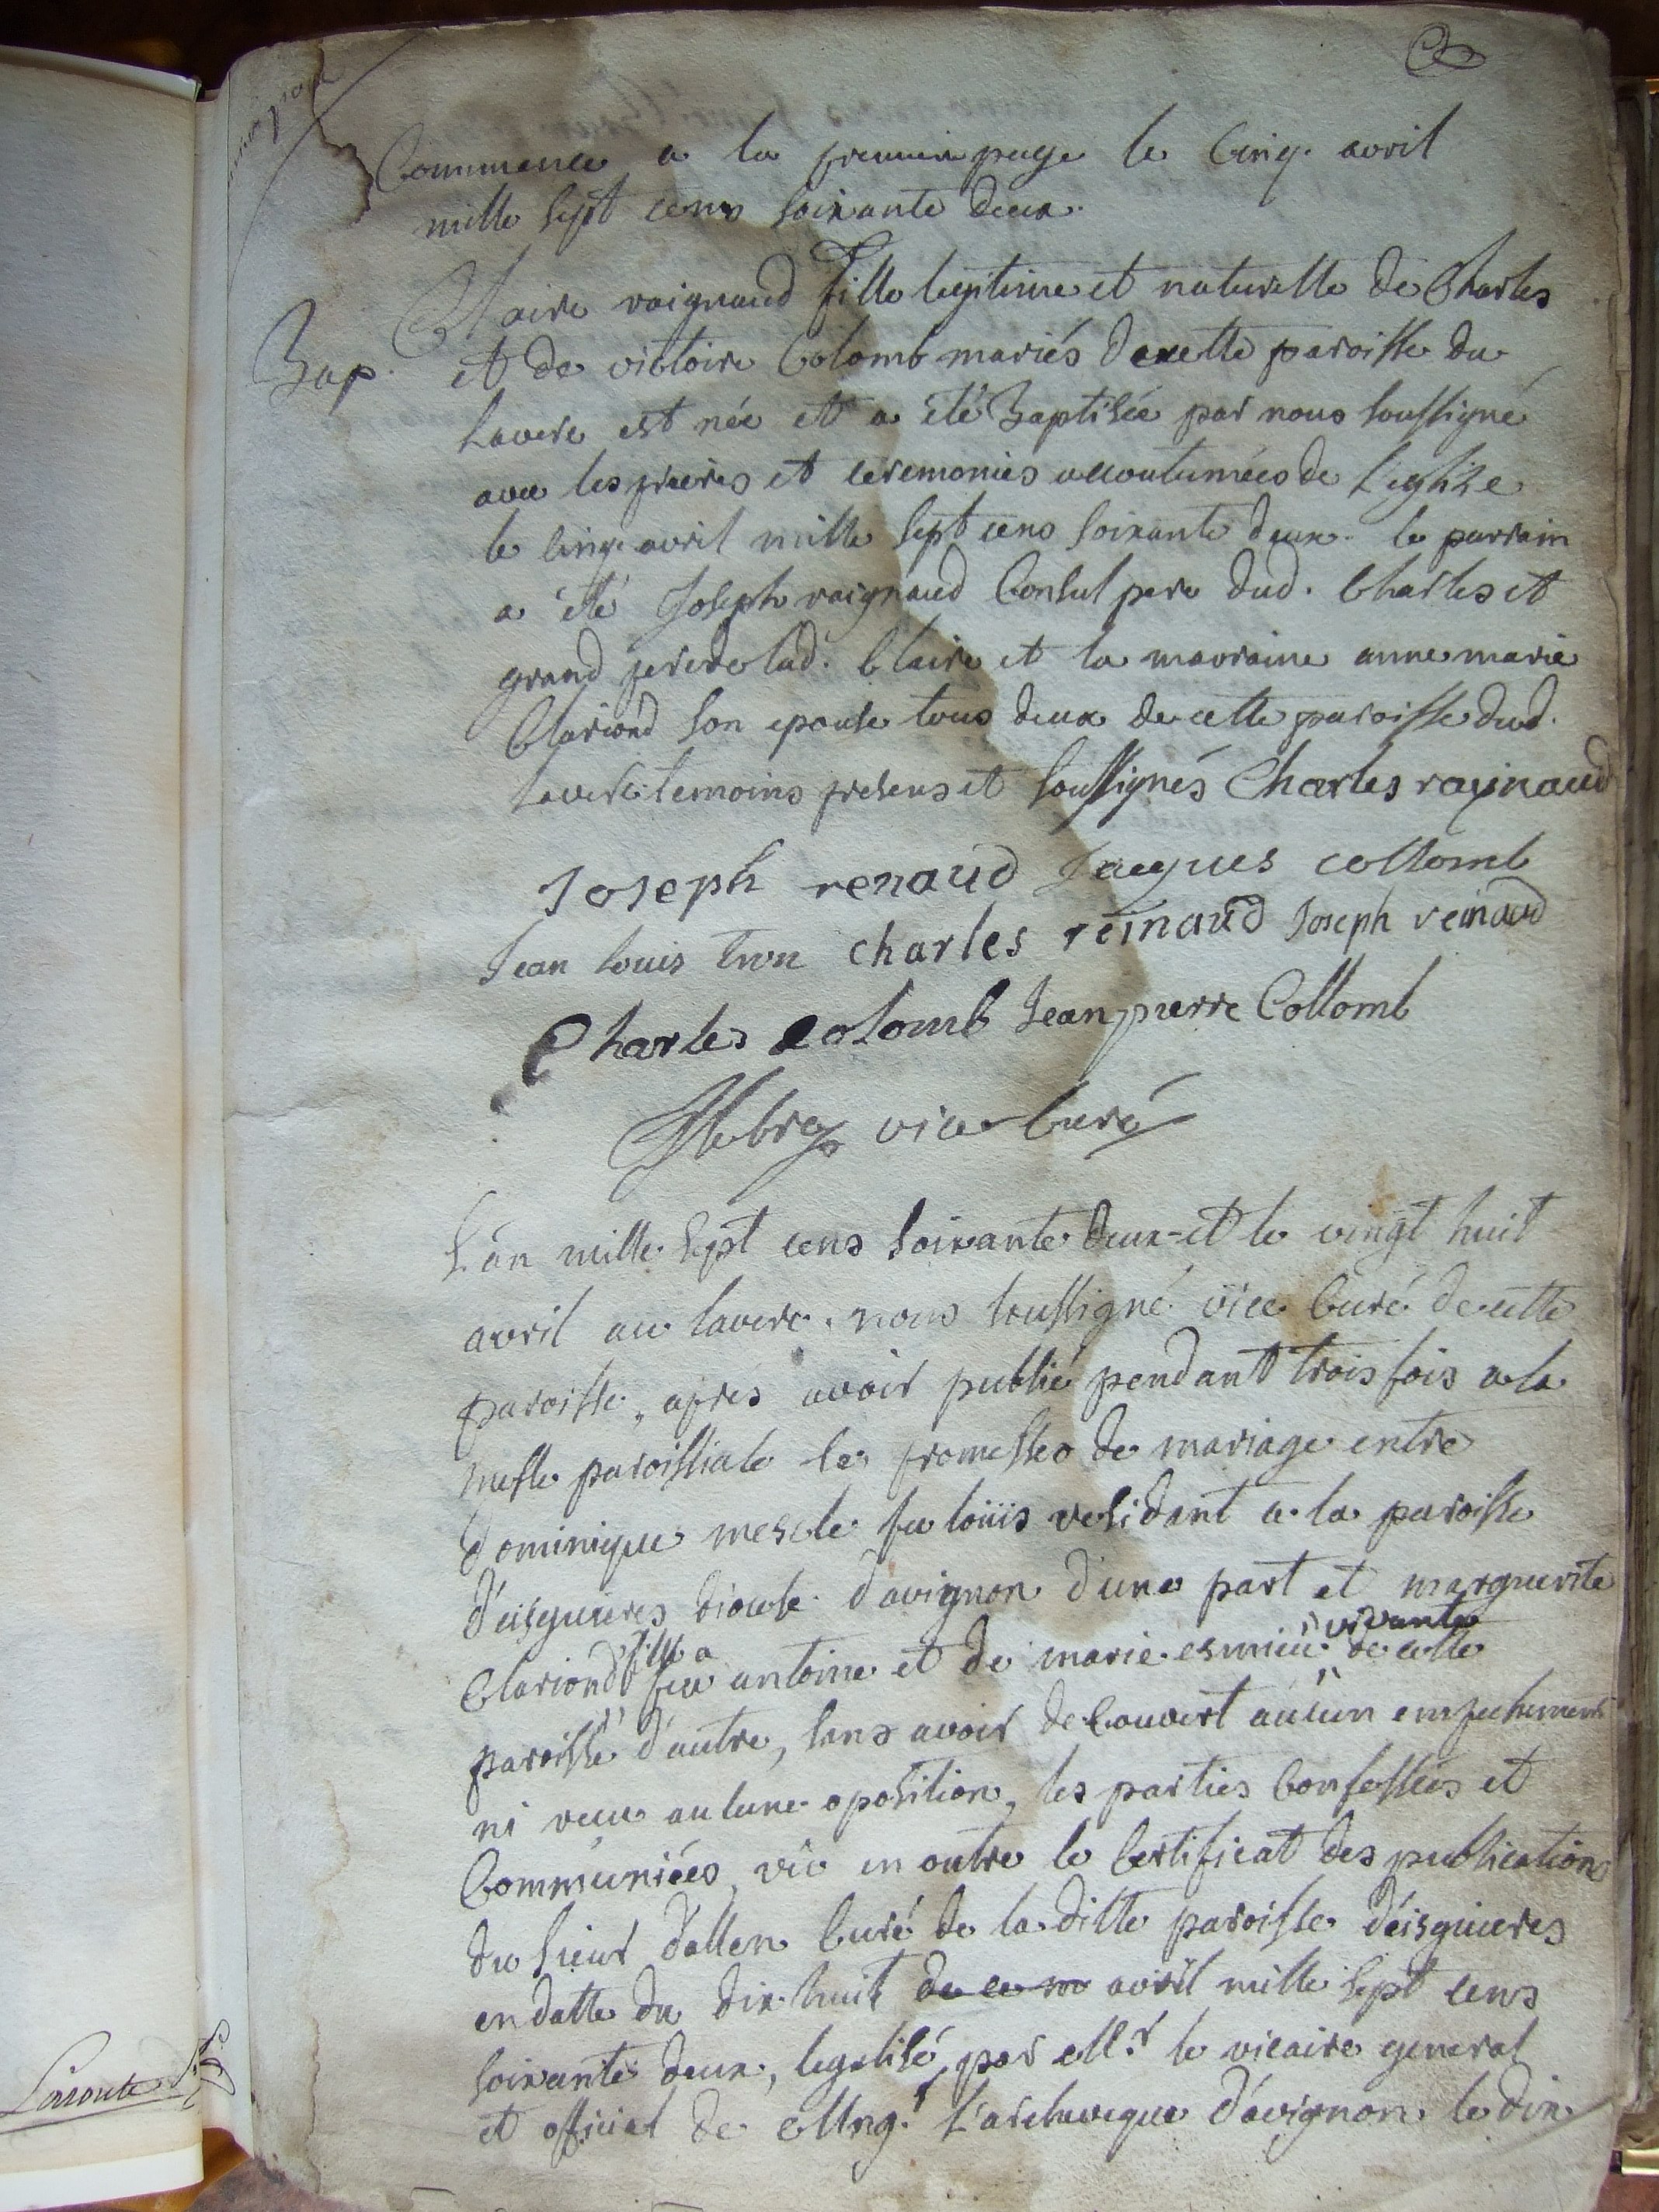 Commence a la premiere page le Cinq. avril
mille sept cens soixante deux.
Claire raignaud fille legitime et naturelle de Charles
Bap. et de victoire Colomb mariés de cette paroisse du
Laverc est née et a été Baptisée par nous soussigné
avec les prieres et ceremonies accoutumées de L'eglise
le cinq. avril mille sept cens soixante deux. le parrain
a été Joseph raignaud Consul pere dud. Charles et
grand pere de lad. Claire et la marraine anne marie
Clariond son epouse tous deux de cette paroisse dud.
Laverc temoins presens et soussignés Charles raynaud
Joseph renaud Jacques collomb
Jean louis tron charles reinaud Joseph reinaud
Charles colomb Jean pierre Collomb
vice Curé
L'an mille sept cens soixante deux et le vingt huit
avril au laverc. nous soussigné vice Curé de cette
paroisse, apres avoir publié pendant trois fois a la
messe paroissiale les promesses de mariage entre
dominique mescle feu loüis residant a la paroisse
d'eisguieres diocese d'avignon d'une part et marguerite
vivante
Clariond fille a feu antoine et de marie esmieu de cette
paroisse d'autre, sans avoir decouvert aucun empechement
ni reçu aucune oposition, les parties Confessées et
Communiées, vû en outre le Certificat des publications
du sieur d'allen Curé de la ditte paroisse d'eisguieres
en datte du dix huit de ce mo avril mille sept cens
soixante deux, legalisé par Mr. le vicaire general
et official de Mngr. L'archeveque d'avignon le dix
Laroute